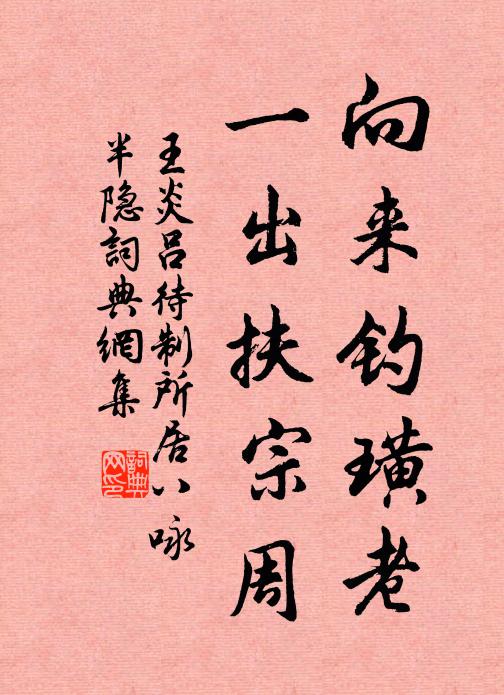 向来钓璜老
一出扶宗周
王炎吕待制所居八咏
半隐詞典網集
詞典網印